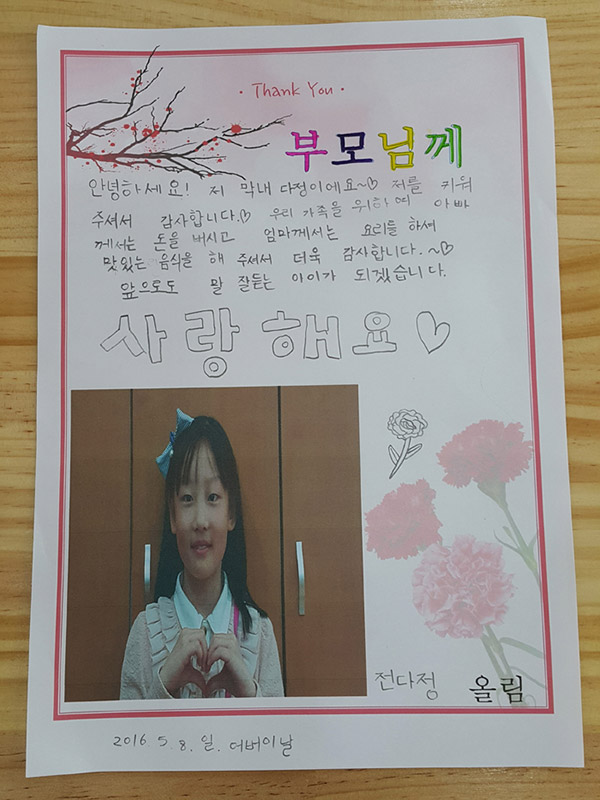 · Thank You ·
부모님께
안녕하세요! 저 막내 다정이에요~♡ 저를 키워
주셔서 감사합니다.♡ 우리 가족을 위하여 아빠
께서는 돈을 버시고 엄마께서는 요리를 하셔
맛있는 음식을 해 주셔서 더욱 감사합니다.~♡
앞으로도 말 잘듣는 아이가 되겠습니다.
사랑해요♡
전다정 올림
2016 5. 8. 일. 어버이날